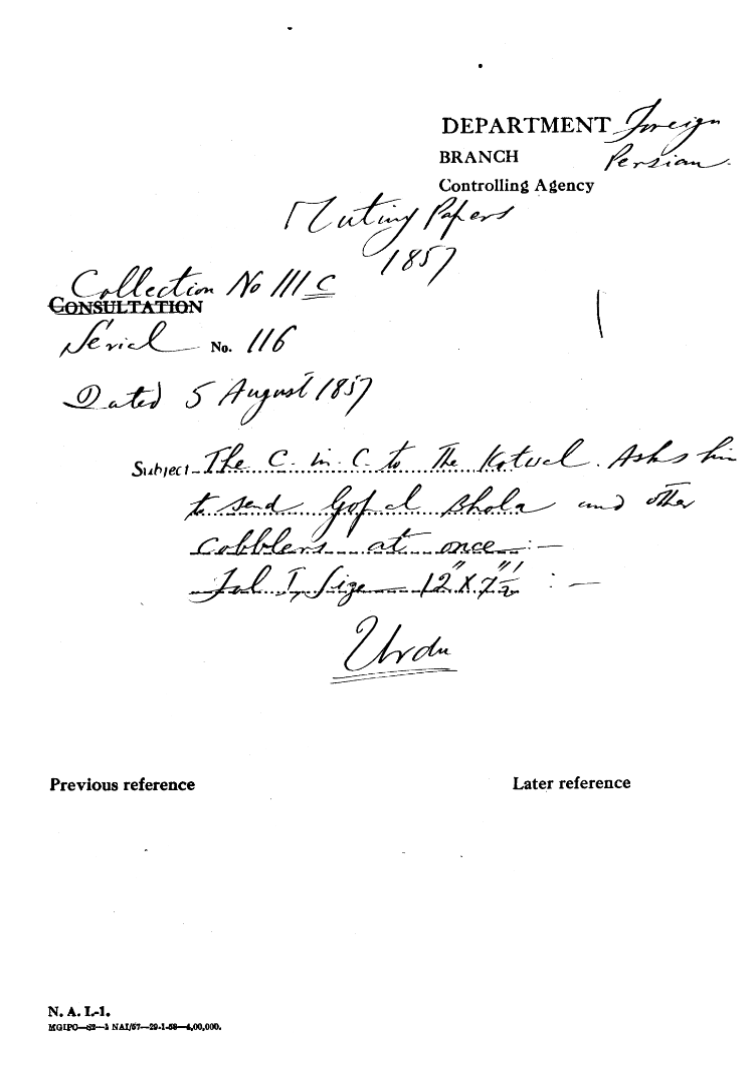 DEPARTMENT Foreign
BRANCH Persian.
Controlling Agency
Mutiny Papers
1857
Collection No 111 C
CONSULTATION
Serial No. 116
Dated 5 August 1857
Subject The C. in C. to The Kotwal. Asks him
to send Gopal Bhola and other
cobblers at once :—
Fol 1, Size 12" X 7½" :—
Urdu
Previous reference Later reference
N. A. L-1.
MGIPC—S2—3 NAI/57—29-1-58—4,00,000.